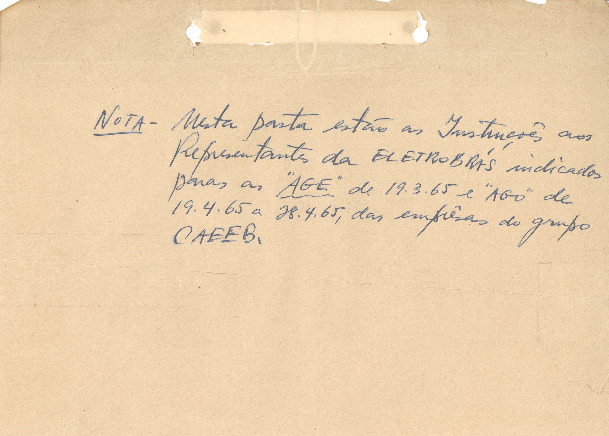 NOTA - Nesta pasta estão as Instruções aos
Representantes da ELETROBRÁS indicados
paras as "AGE" de 19.3.65 e "AGO" de
19.4.65 a 28.4.65, das emprêsas do grupo
CAEEB.